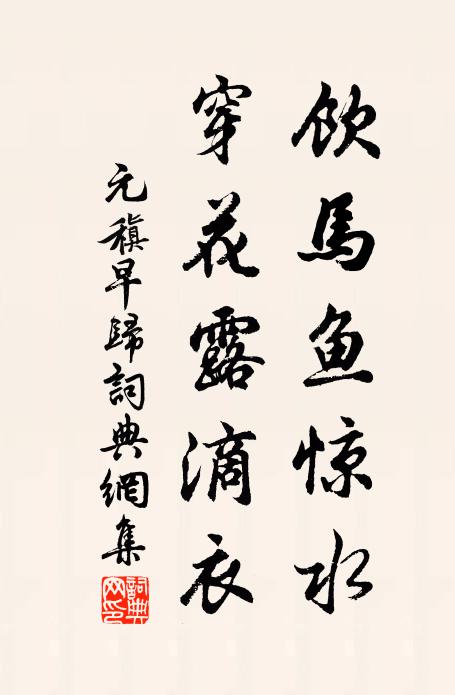 飲馬鱼惊水
穿花露滴衣
元稹早歸詞典網集
詞典網印